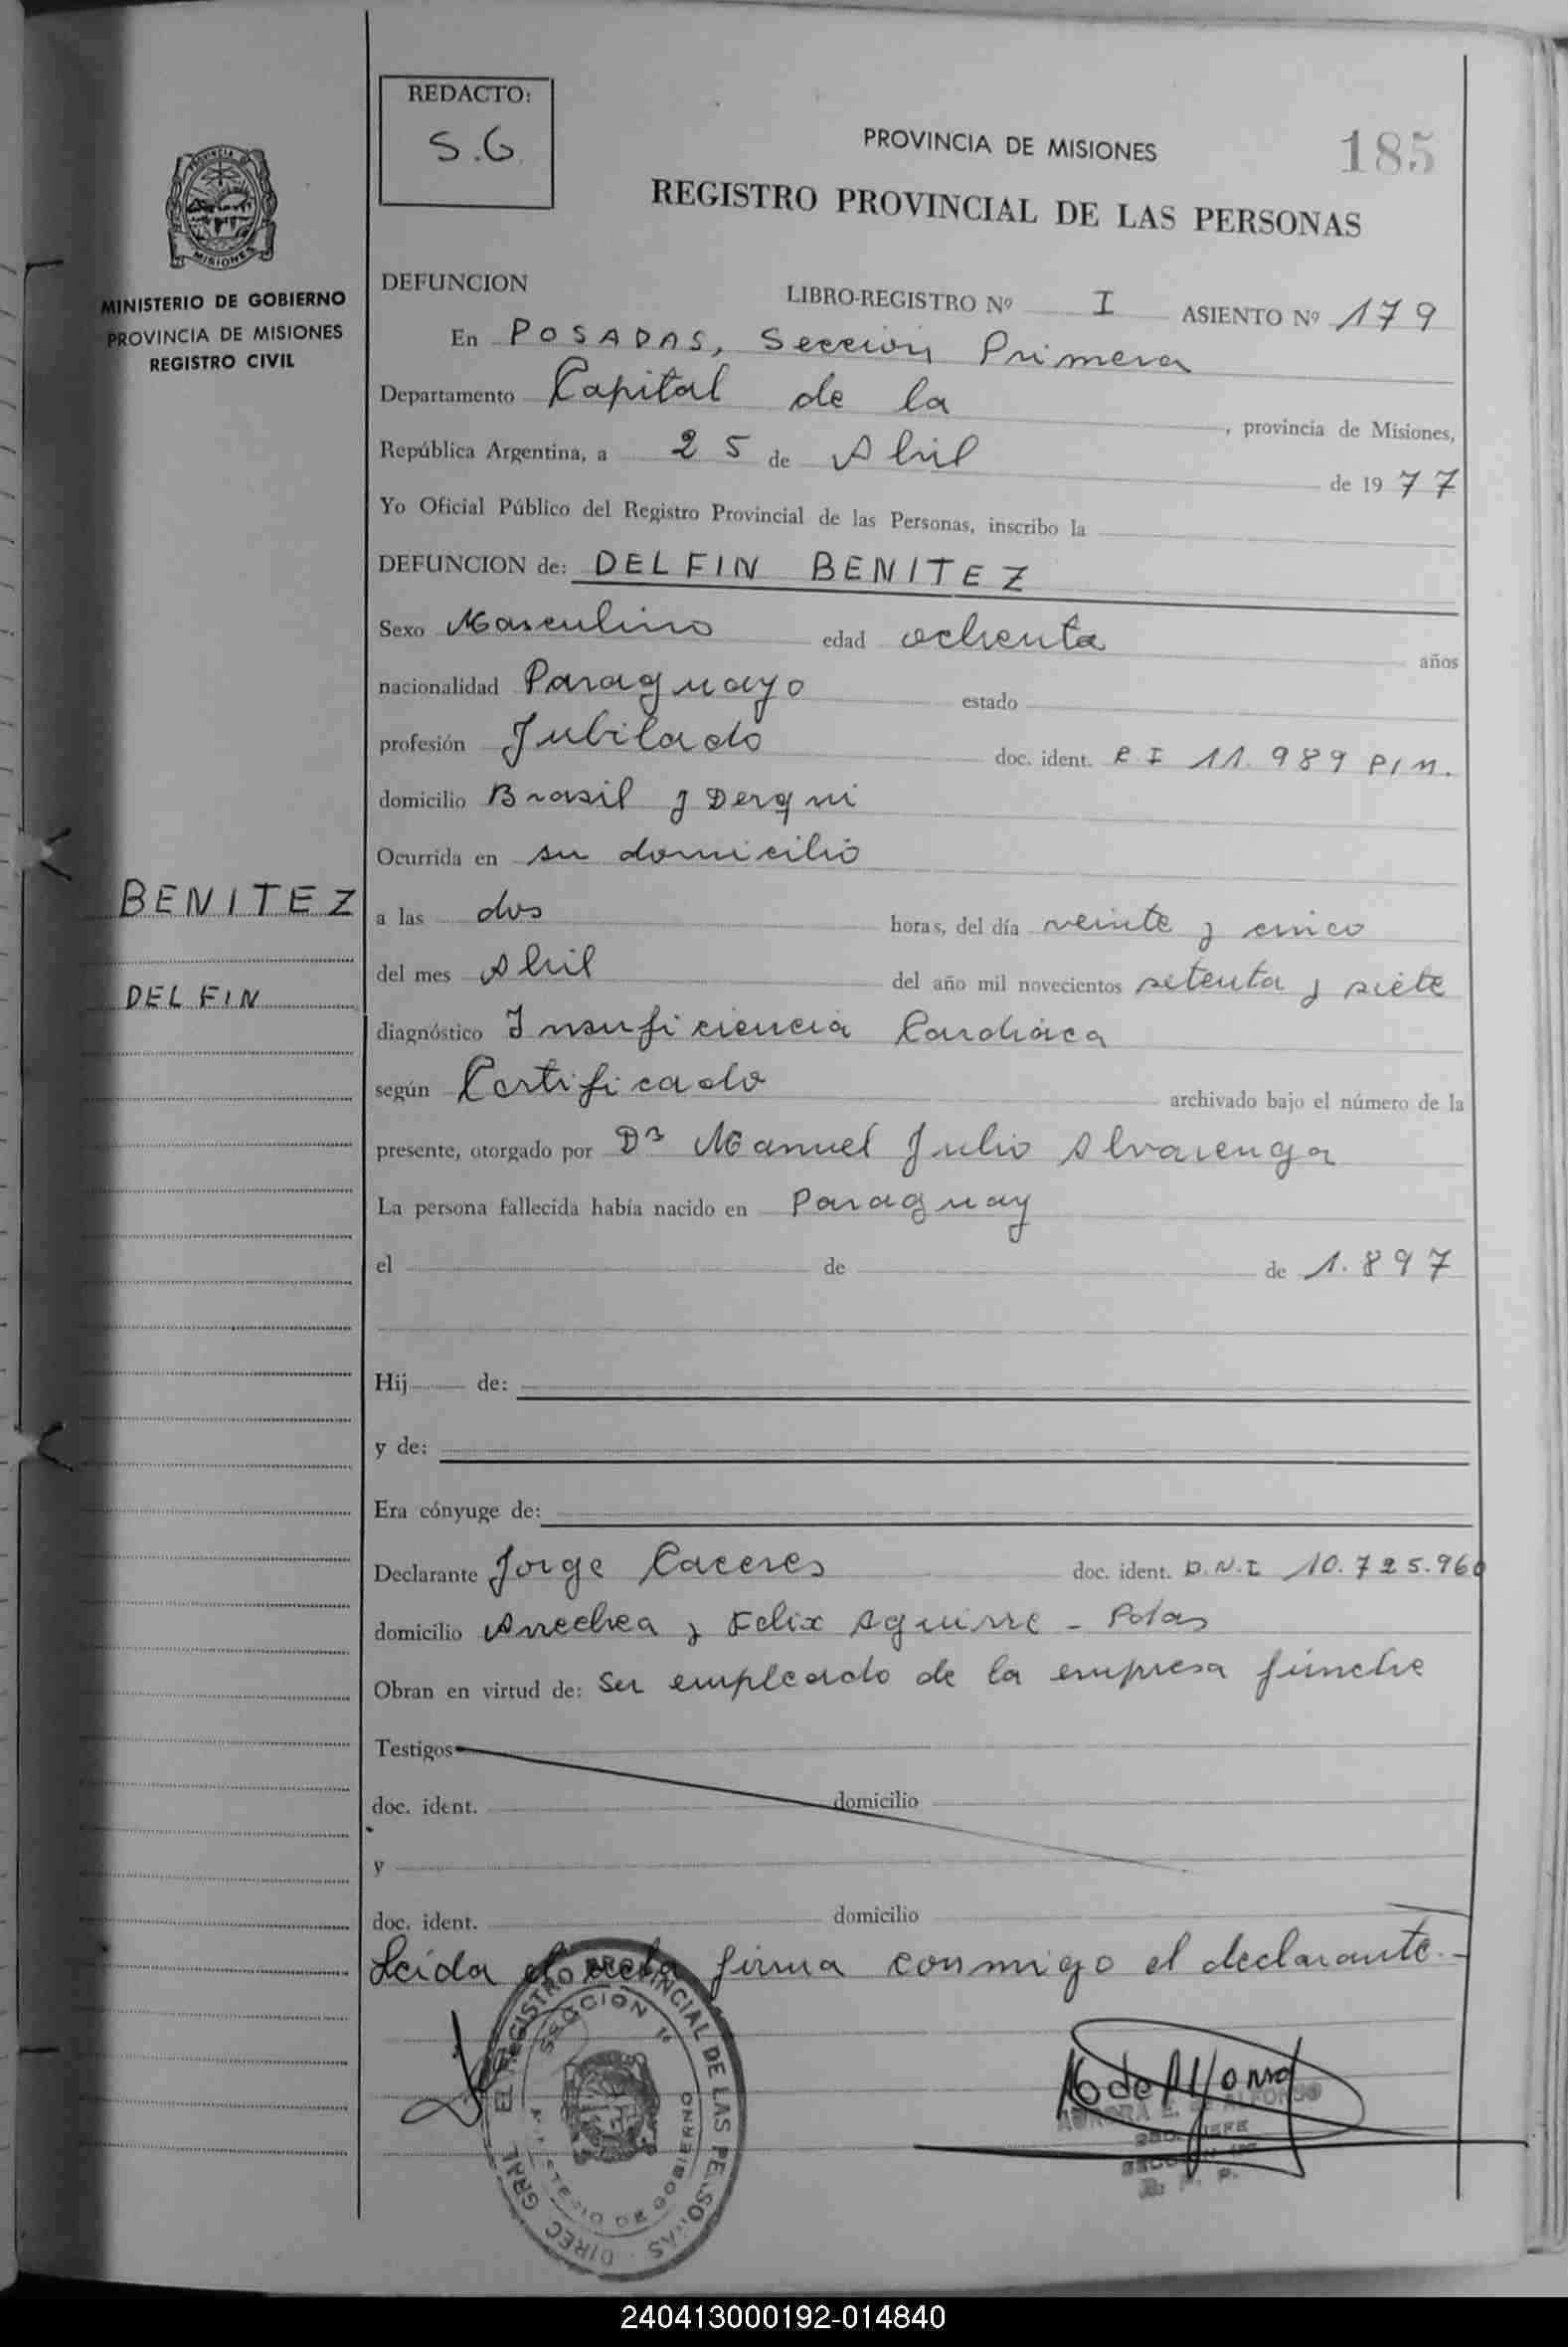 REDACTO:
S.G.
PROVINCIA DE MISIONES
185
REGISTRO PROVINCIAL DE LAS PERSONAS
MISIONES
MINISTERIO DE GOBIERNO
PROVINCIA DE MISIONES
REGISTRO CIVIL
DEFUNCION
LIBRO-REGISTRO Nº I ASIENTO Nº 179
En POSADAS, Sección Primera
Departamento Capital de la , provincia de Misiones,
República Argentina, a 25 de Abril de 1977
Yo Oficial Público del Registro Provincial de las Personas, inscribo la
DEFUNCION de: DELFIN BENITEZ
Sexo Masculino edad ochenta años
nacionalidad Paraguayo estado
profesión Jubilado doc. ident. R.I 11.989 P/M.
domicilio Brasil y Derqui
Ocurrida en su domicilio
BENITEZ
a las dos horas, del día veinte y cinco
DELFIN
del mes Abril del año mil novecientos setenta y siete
diagnóstico Insuficiencia Cardiaca
según Certificado archivado bajo el número de la
presente, otorgado por Dr Manuel Julio Alvarenga
La persona fallecida había nacido en Paraguay
el de de 1.897
Hij de:
y de:
Era cónyuge de:
Declarante Jorge Caceres doc. ident. D.N.I 10.725.960
domicilio Arrechea y Felix Aguirre - Pdas
Obran en virtud de: Ser empleado de la empresa fúnebre
Testigos
doc. ident. domicilio
y
doc. ident. domicilio
Leída el acta firma conmigo el declarante.-
DIREC. GRAL. REGISTRO PROVINCIAL DE LAS PERSONAS
SECCION 1ª
MINISTERIO DE GOBIERNO
de Alfonso
AURORA E. DE ALFONSO
JEFE
240413000192-014840